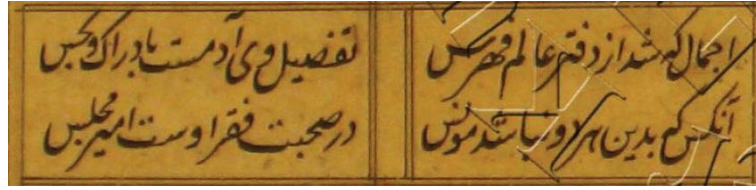 اجمال که شد از دفتر عالم فهرس
تفصیل وی آدمست بادراک و بحس
آنکس که بدین هر دو نباشد مونس
در صحبت فقر اوست امیر مجلس